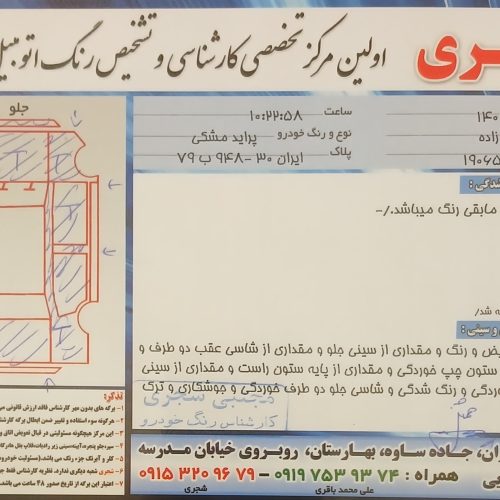 اولین مرکز تخصصی کارشناسی و تشخیص رنگ اتومبیل
جری
جلو
ساعت ۱۰:۲۲:۵۸
۱۴۰
نوع و رنگ خودرو پراید مشکی
زاده
پلاک ایران ۳۰ -۹۴۸ ب ۷۹
۱۹۰۶۵
شدگی :
مابقی رنگ میباشد./-
ه شد/
و سینی :
یض و رنگ و مقداری از سینی جلو و مقداری از شاسی عقب دو طرف و
ستون چپ خوردگی و مقداری از پایه ستون راست و مقداری از سینی
خوردگی و رنگ شدگی و شاسی جلو دو طرف خوردگی و جوشکاری و ترک
مجتبی سجری
کارشناس رنگ خودرو
تذکر:
۱- برگه های بدون مهر کارشناس فاقد ارزش قانونی می
۲- هرگونه سوء استفاده و تغییر ضمن ابطال برگه کارشنا
۳- این مرکز هیچگونه مسئولیتی در قبال تعویض اتاق و
ران، جاده ساوه، بهارستان، روبروی خیابان مدرسه
همراه : ۰۹۱۹ ۷۵۳ ۹۳ ۷۴ - ۰۹۱۵ ۳۲۰ ۹۶ ۷۹
علی محمد باقری
شجری